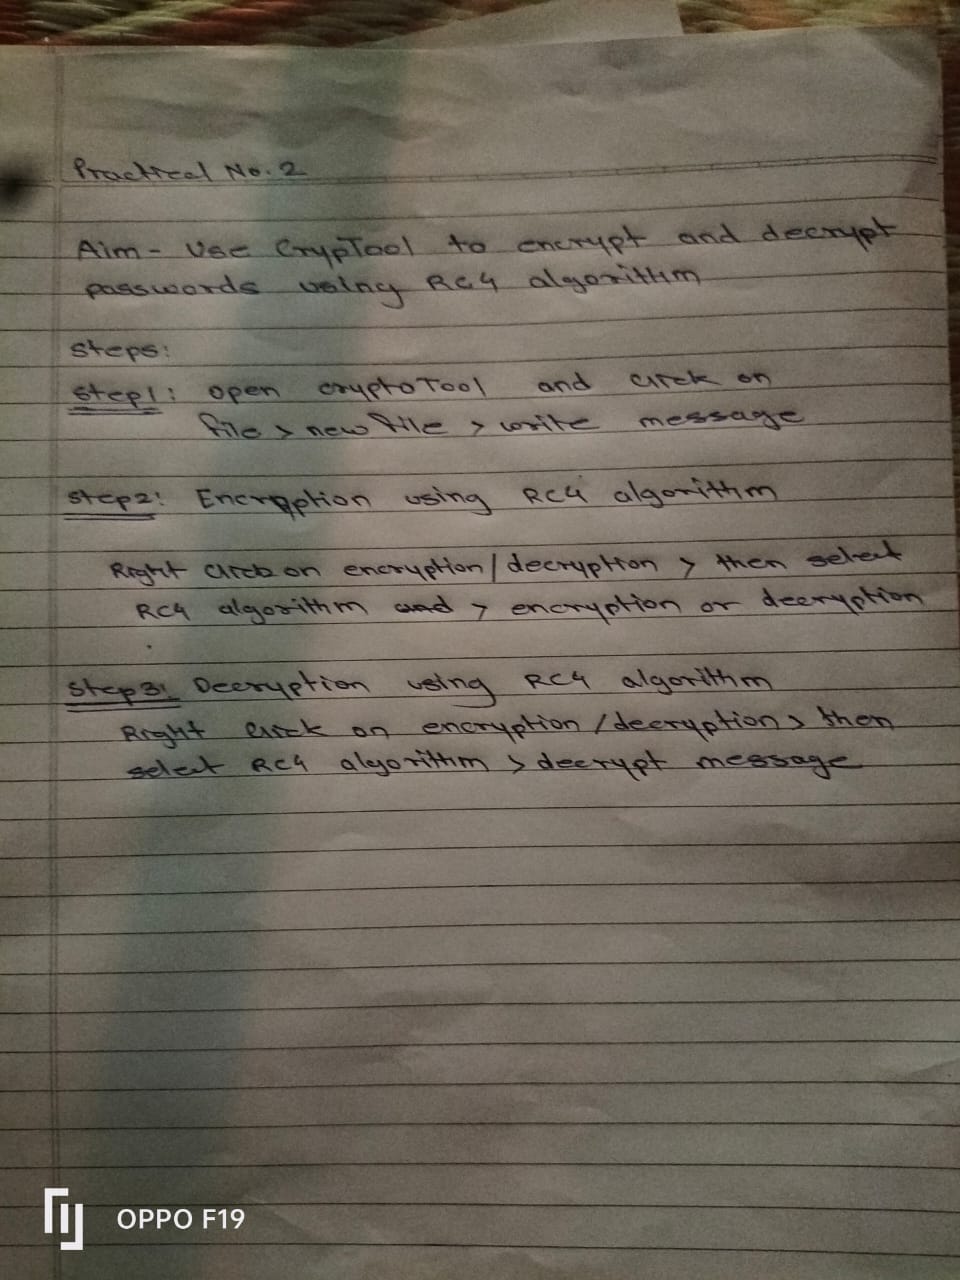 Practical No. 2
Aim - Use CrypTool to encrypt and decrypt
passwords using RC4 algorithm
Steps:
Step1: open cryptoTool and click on
file > new file > write message
Step2: Encryption using RC4 algorithm
Right click on encryption/decryption > then select
RC4 algorithm and > encryption or decryption
Step3: Decryption using RC4 algorithm
Right click on encryption/decryption > then
select RC4 algorithm > decrypt message
OPPO F19